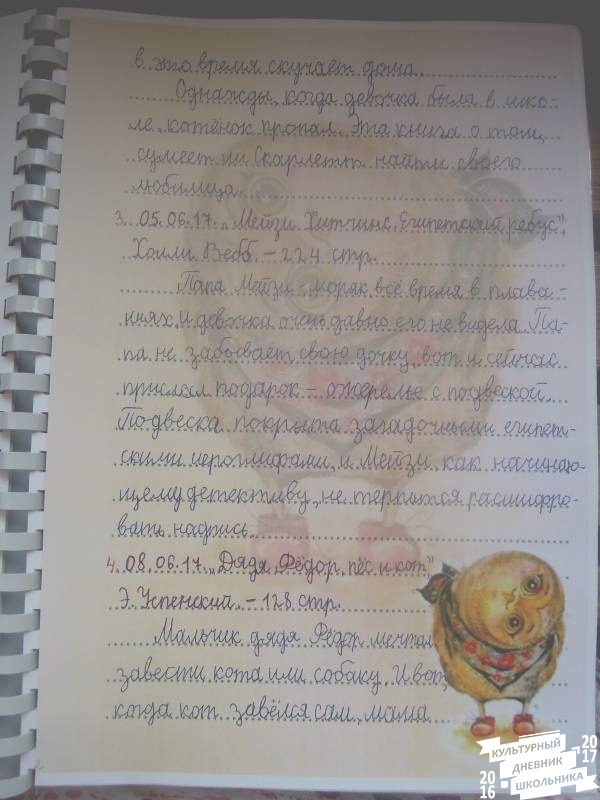 в это время скучает дома.
Однажды, когда девочка была в шко-
ле, котёнок пропал. Эта книга о том,
сумеет ли Скарлетт найти своего
любимца.
3. 05.06.17. „Мейзи Хитчинс. Египетский ребус",
Холли Вебб. – 224 стр.
Папа Мейзи – моряк всё время в плава-
ниях, и девочка очень давно его не видела. Па-
па не забывает свою дочку, вот и сейчас
прислал подарок – ожерелье с подвеской.
Подвеска покрыта загадочными египет-
скими иероглифами, и Мейзи, как начинаю-
щему детективу, не терпится расшифро-
вать надпись.
4. 08.06.17. „Дядя Фёдор, пёс и кот",
Э. Успенский. – 128 стр.
Мальчик дядя Фёдор мечтал
завести кота или собаку. И вот,
когда кот завёлся сам, мама
КУЛЬТУРНЫЙ
ДНЕВНИК
ШКОЛЬНИКА
2016
2017